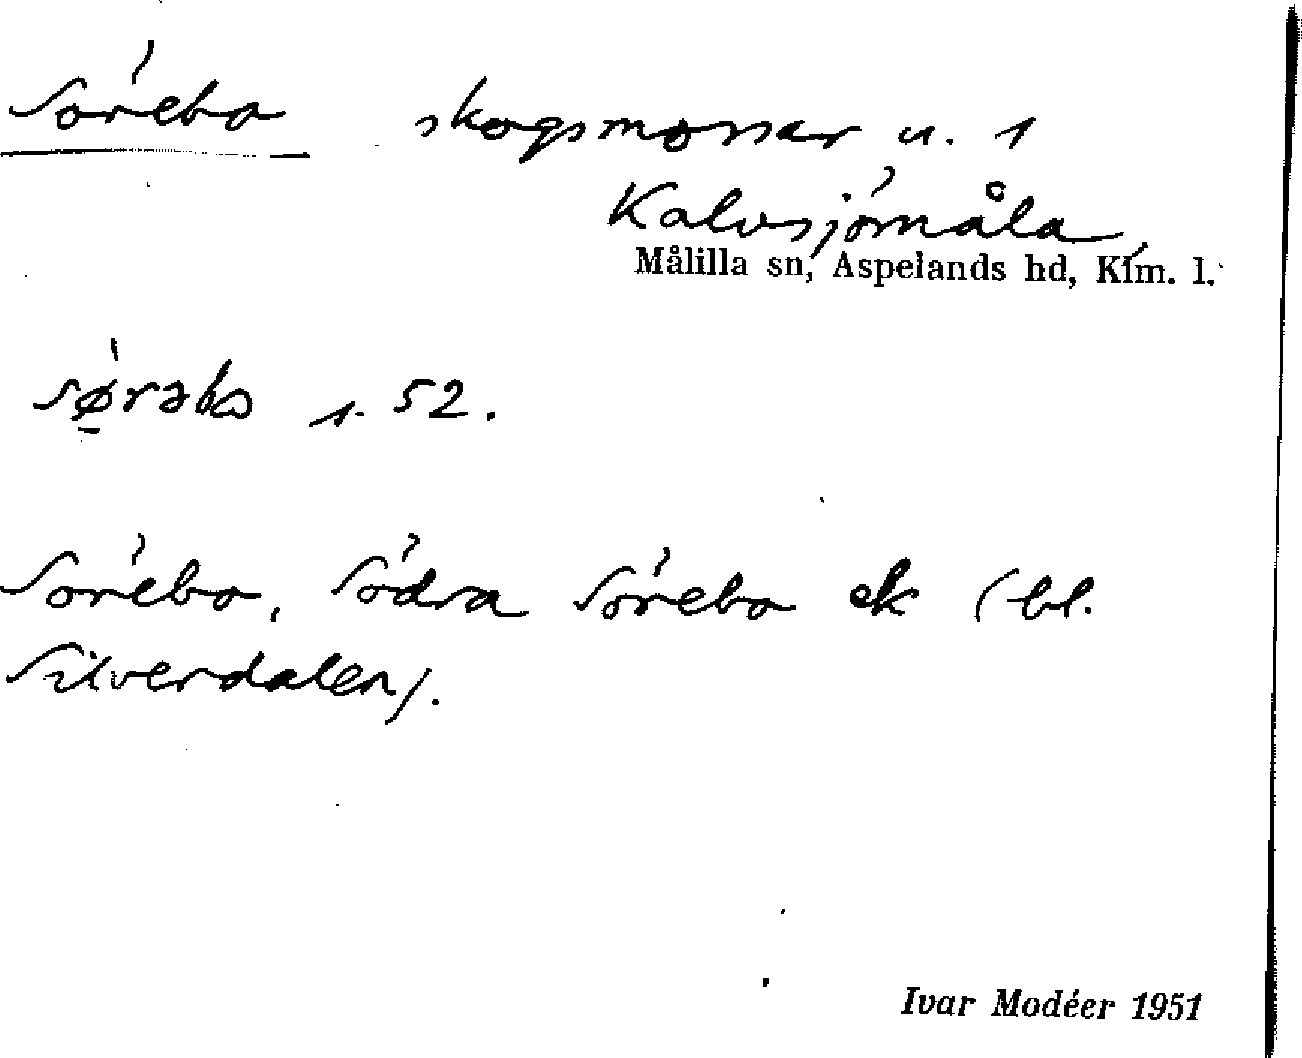 Sörebo skogsmossar u. 1
Kalvsjömåla,
Målilla sn, Aspelands hd, Klm. l.
s. 52.
Sörebo, Södra Sörebo ek (bl.
Silverdalen).
Ivar Modéer 1951